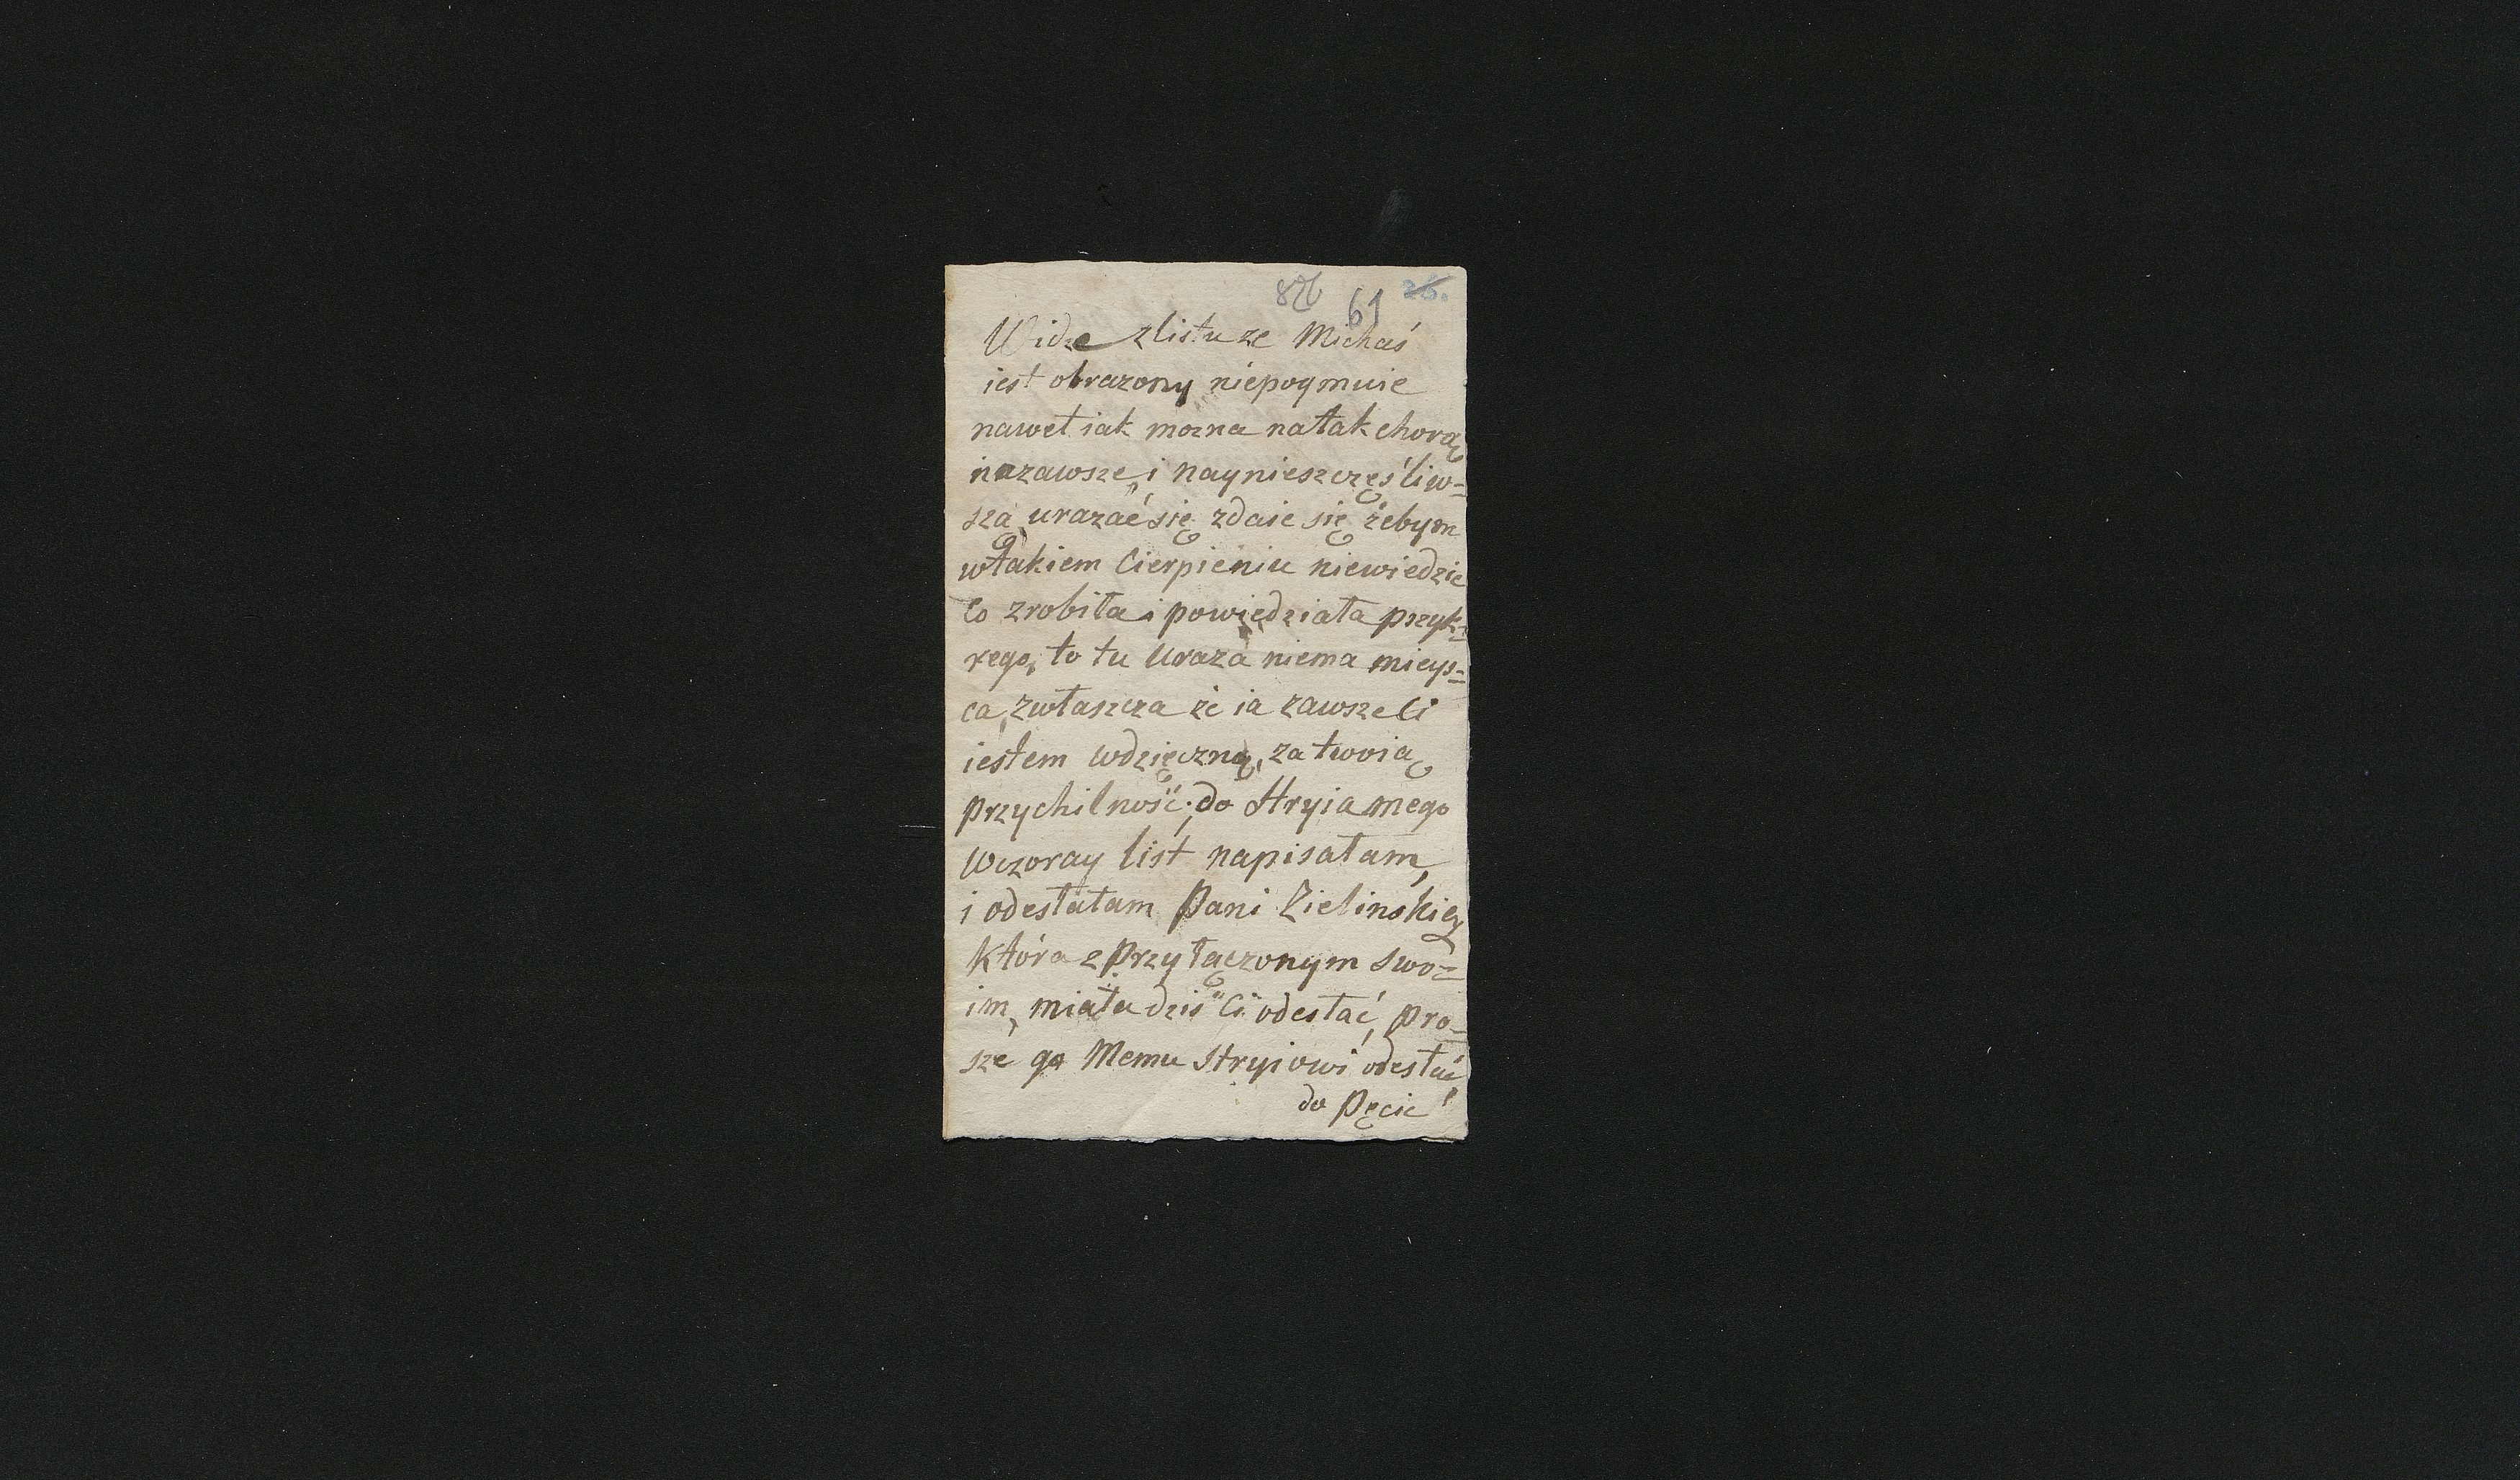 61 26.
Widze zlistu ze Michaś
iest obrazony niepoymuie
nawet iak mozna natak chorą
inazawsze, i naynieszczęśliw=
szą urazać się zdaie się żebym
wtakiem Cierpieniu niewiedzie
Co zrobiła i powiedziała przyk=
rego, to tu Uraza niema mieys=
ca, zwłaszcza że ia zawsze Ci
iestem wdzięczną, za twoią
przychilność; do Stryia mego
Wczoray list napisałam,
i odesłałam Pani Zielinskiey
która z Przyłączonym swo=
im, miała dziś Ci odesłać, pro=
sze go Memu Stryiowi odesłać
do Pęcic